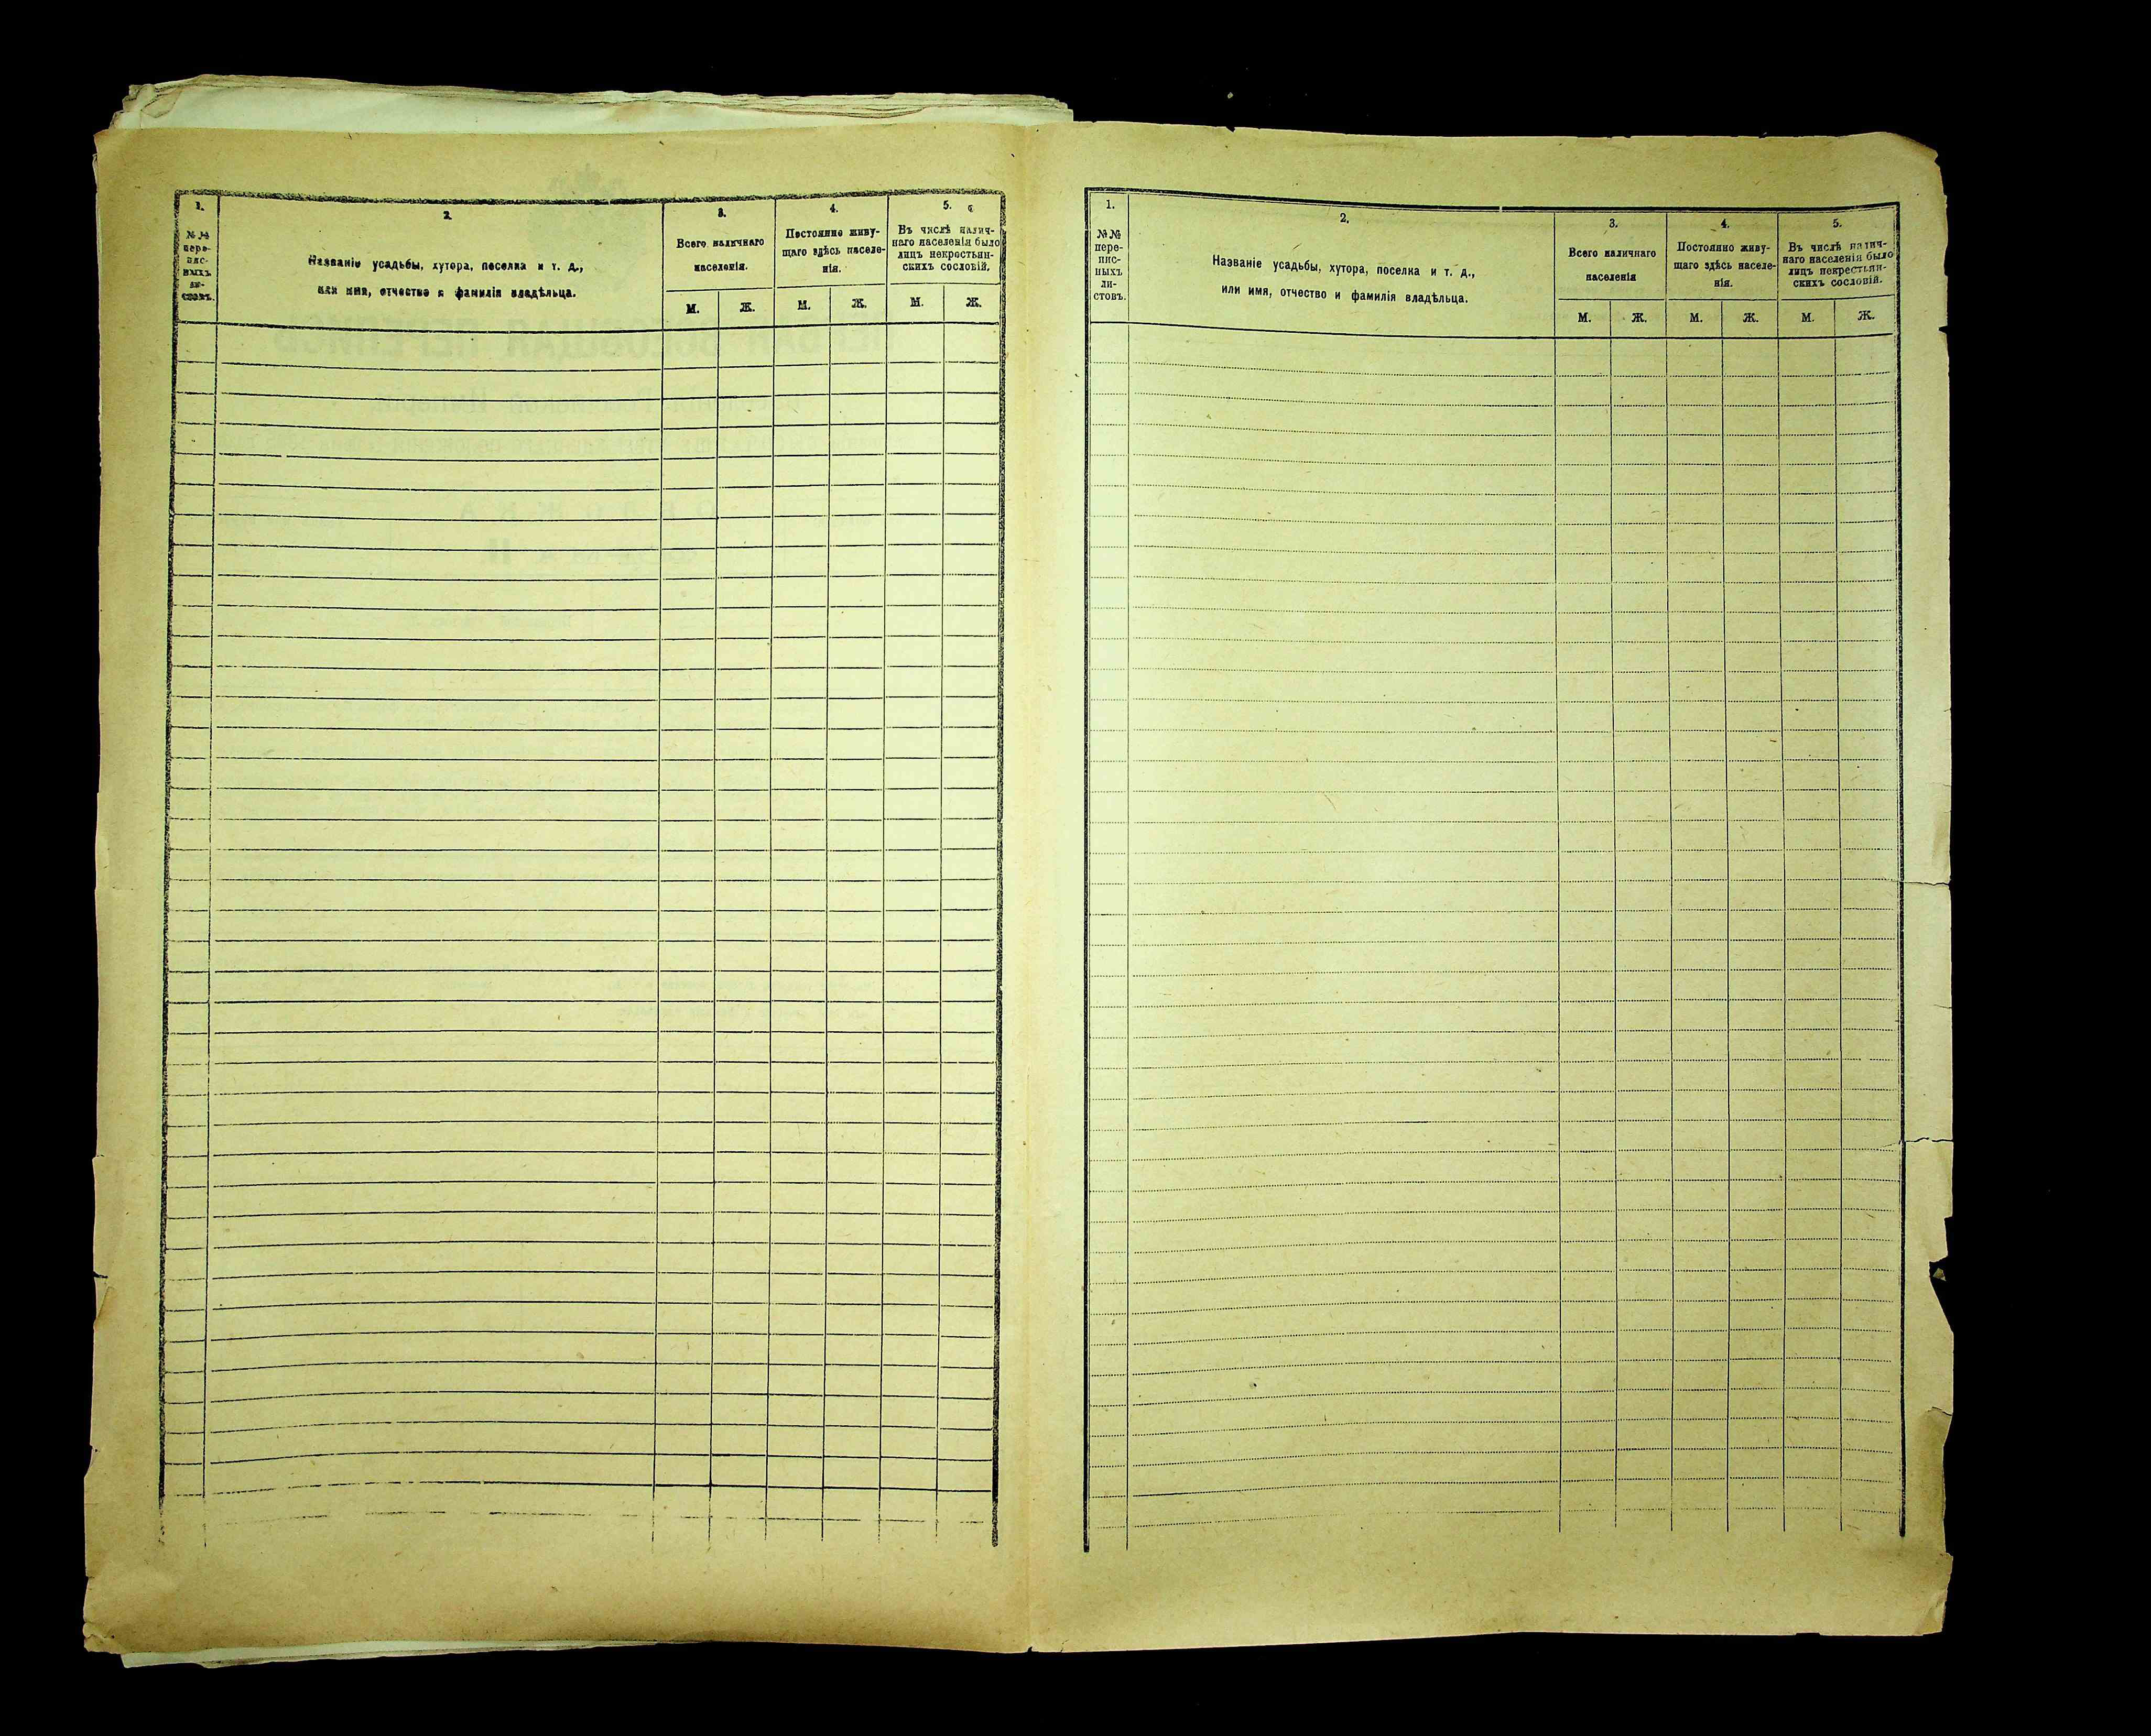 1.
№ №
пере-
пис-
ныхъ
ли-
стовъ.
2.
Названіе усадьбы, хутора, поселка и т. д.,
или имя, отчество и фамилія владѣльца.
3.
Всего наличнаго
населенія.
М. Ж.
4.
Постоянно живу-
щаго здѣсь населе-
нія.
М. Ж.
5.
Въ числѣ налич-
наго населенія было
лицъ некрестьян-
скихъ сословій.
М. Ж.
1.
№ №
пере-
пис-
ныхъ
ли-
стовъ.
2.
Названіе усадьбы, хутора, поселка и т. д.,
или имя, отчество и фамилія владѣльца.
3.
Всего наличнаго
населенія
М. Ж.
4.
Постоянно живу-
щаго здѣсь населе-
нія.
М. Ж.
5.
Въ числѣ налич-
наго населенія было
лицъ некрестьян-
скихъ сословій.
М. Ж.